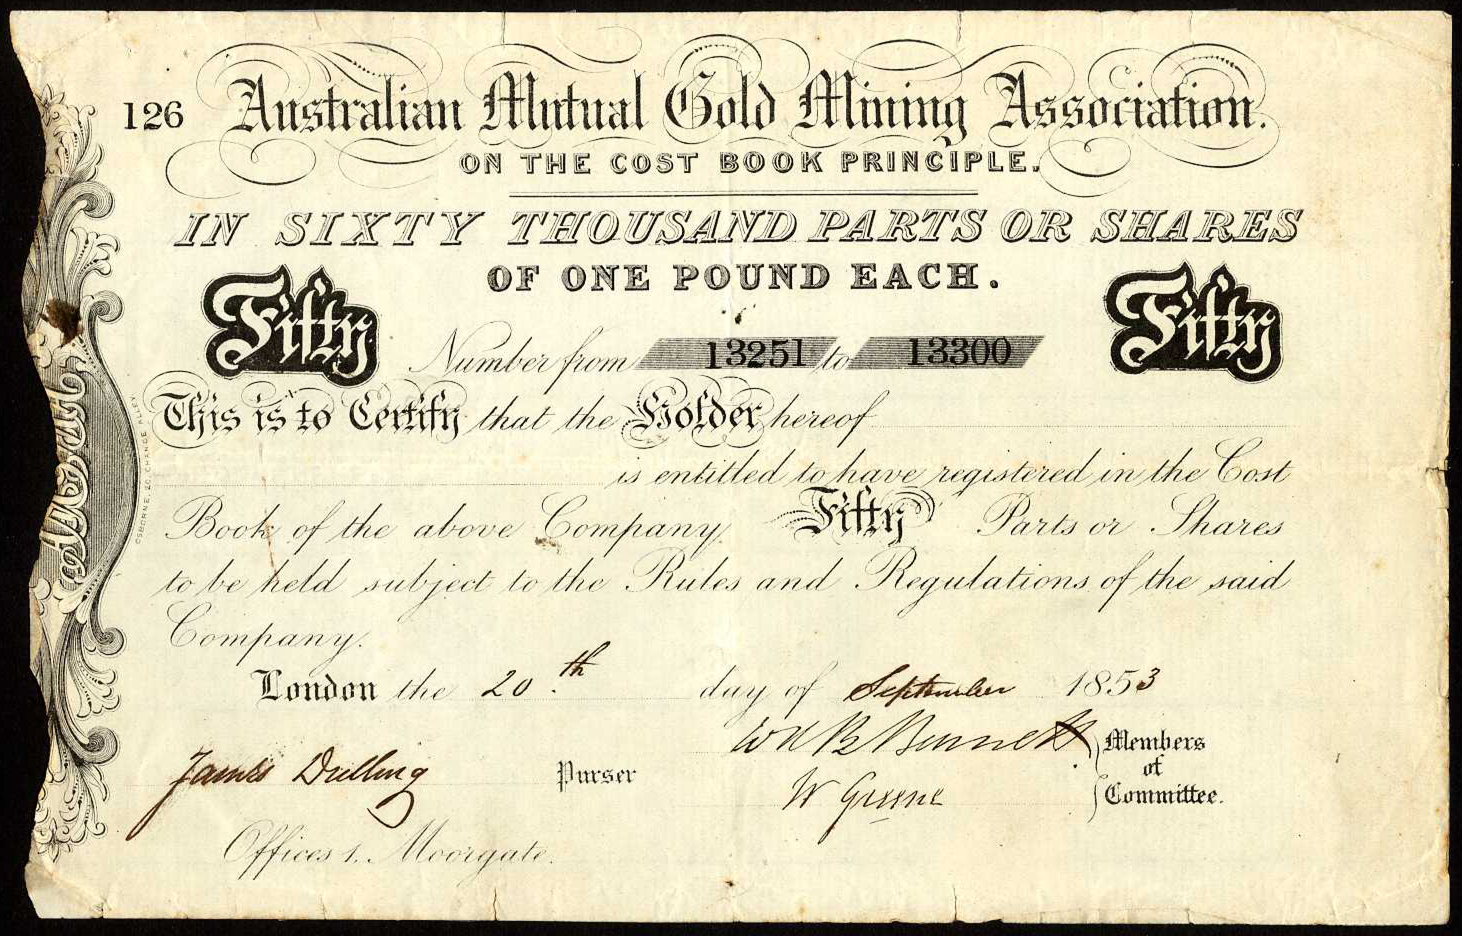 126 Australian Mutual Gold Mining Association.
ON THE COST BOOK PRINCIPLE.
IN SIXTY THOUSAND PARTS OR SHARES
OF ONE POUND EACH.
Fifty Fifty
Number from 13251 to 13300
This is to Certify that the Holder hereof
is entitled to have registered in the Cost
Book of the above Company Fifty Parts or Shares
to be held subject to the Rules and Regulations of the said
Company.
London the 20th day of September 1853
W H B Bennett
James Dulling Purser
W Greene
Members
of
Committee.
Offices 1. Moorgate.